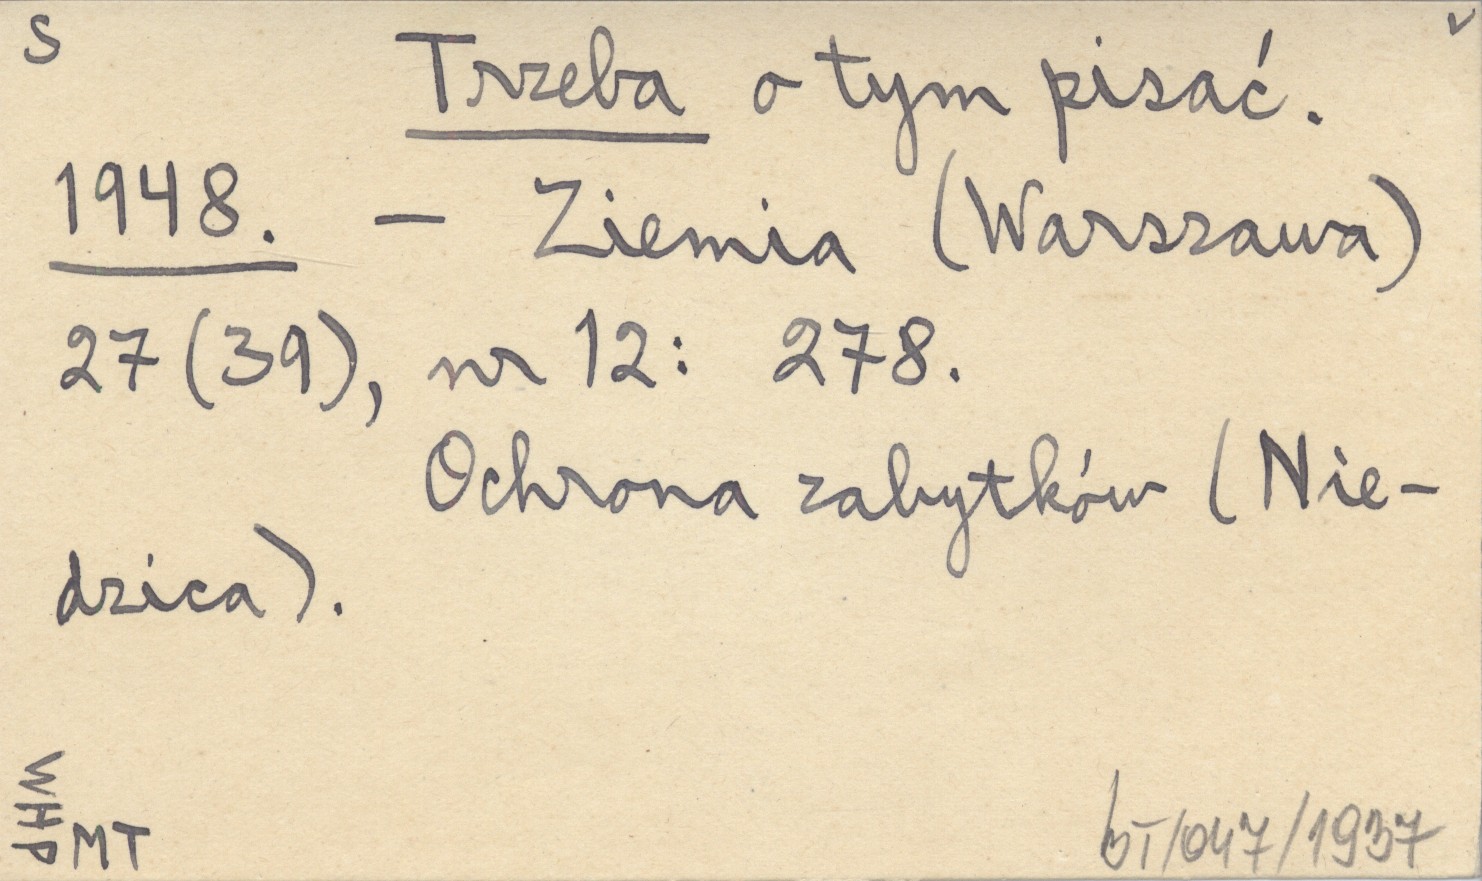 S
v
Trzeba o tym pisać.
1948. — Ziemia (Warszawa)
27 (39), nr 12: 278.
Ochrona zabytków (Nie-
dzica).
WHP
MT
bT/047/1937